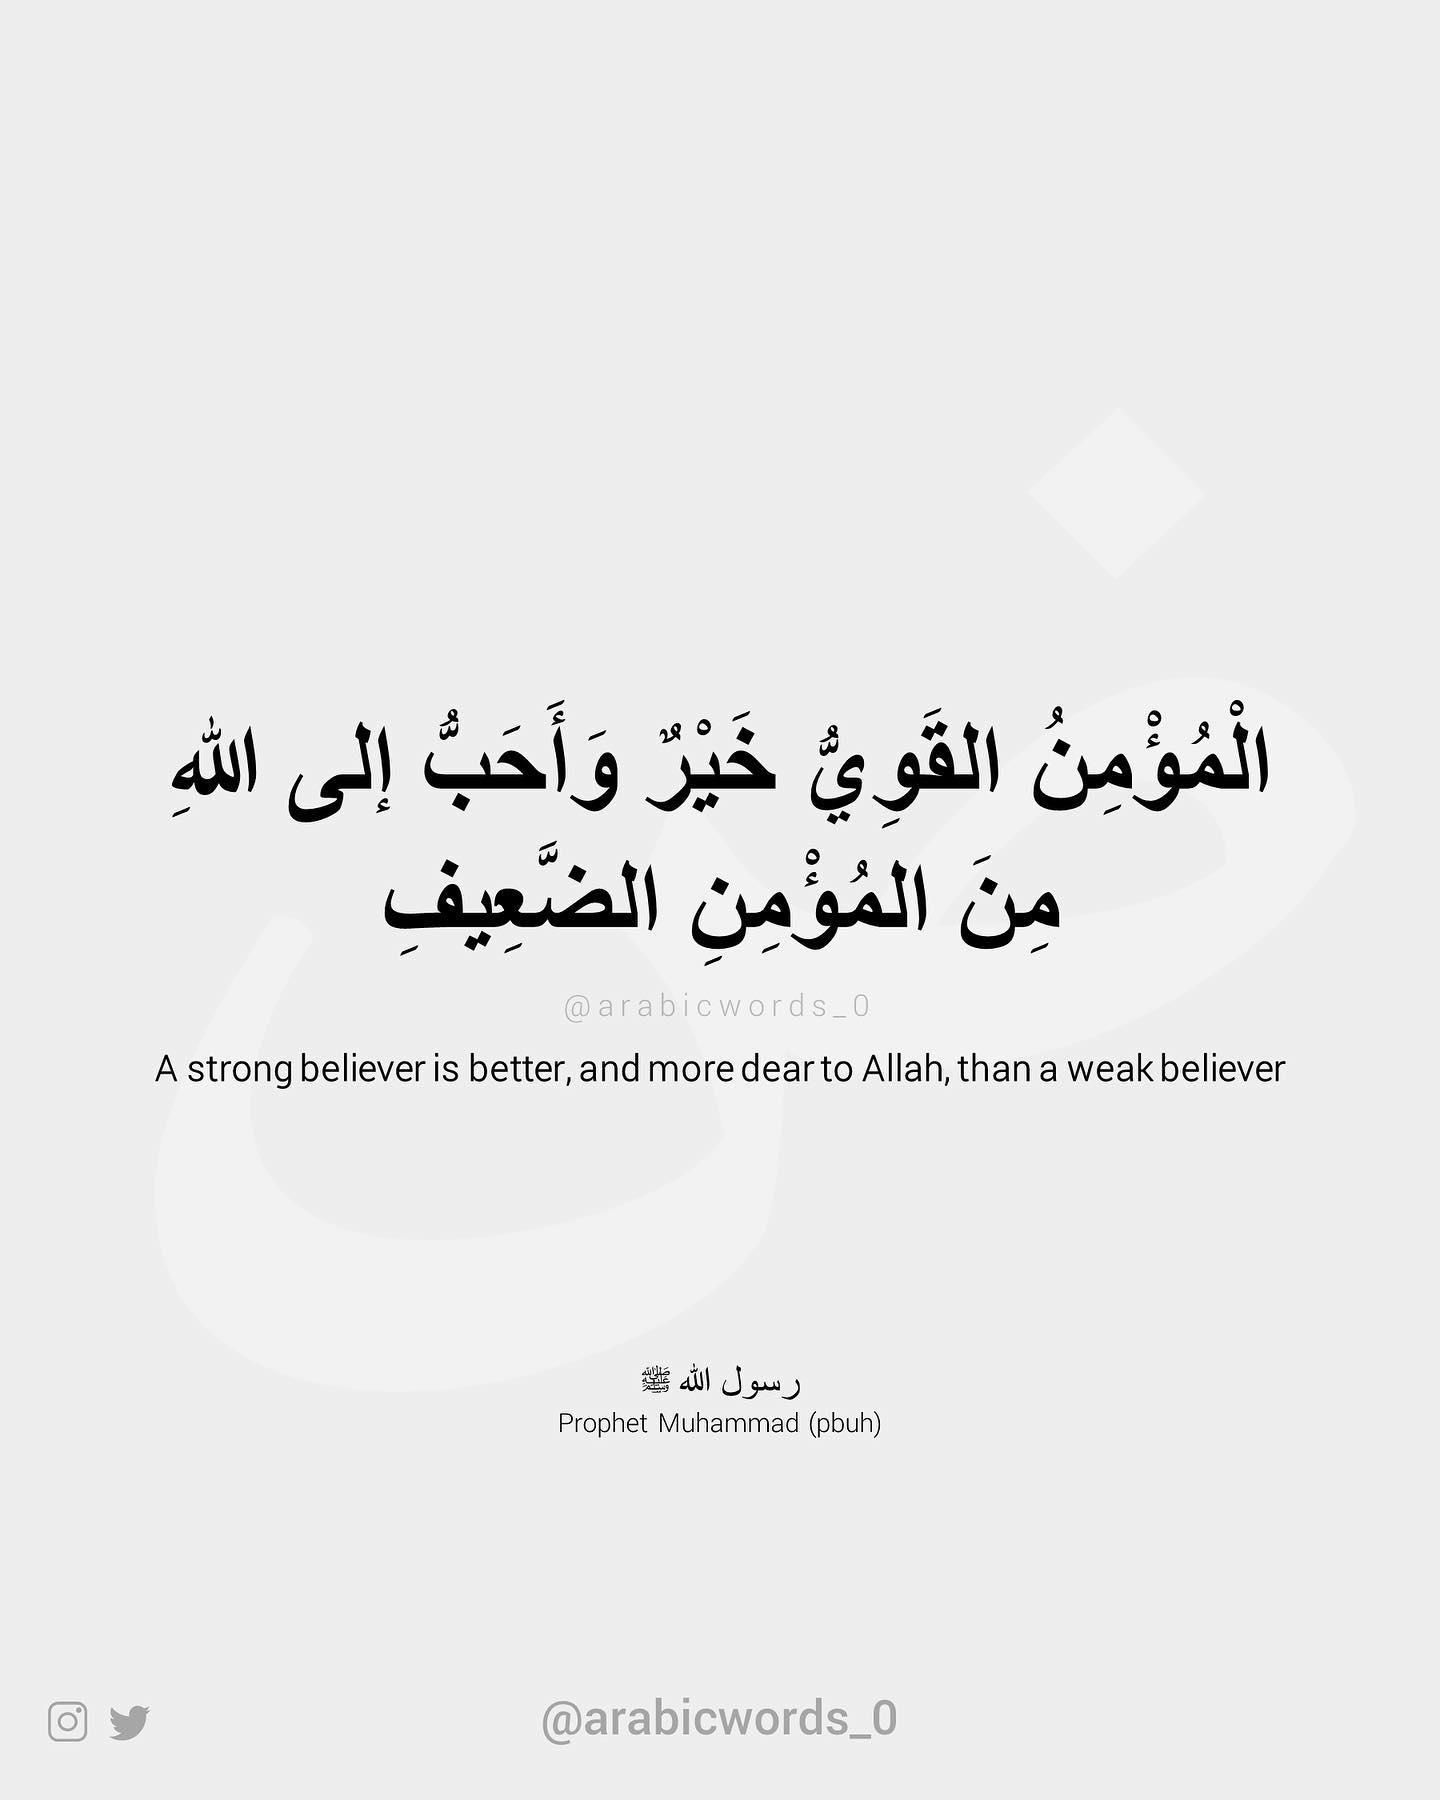 الْمُؤْمِنُ القَوِيُّ خَيْرٌ وَأَحَبُّ إلى اللهِ
مِنَ المُؤْمِنِ الضَّعِيفِ
@arabicwords_0
A strong believer is better, and more dear to Allah, than a weak believer
رسول الله ﷺ
Prophet Muhammad (pbuh)
@arabicwords_0